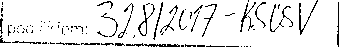 pod číslem: 328/2017-KSUSV